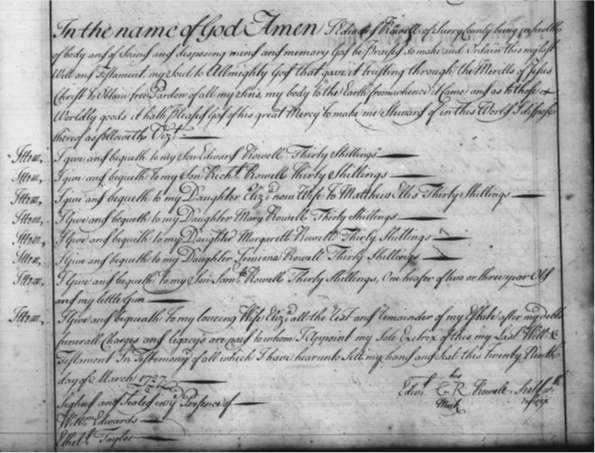 In the name of God Amen I Edward Rowell of Surry County being in health
of body and of Sound and disposing mind and memory God be Praised do make and Ordain this my last
Will and Testament, my Soul to Allmighty God that gave it trusting through the Merrills of Jesus
Christ to Obtain free Pardon of all my Sins, my body to the Earth from whence it Came and as to those
Worldly goods it hath Pleased God of his great Mercy to make me Steward of in this World I dispose
thereof as followeth Vizt.
Ittem, I give and bequeth to my Son Edward Rowell Thirty Shillings
Ittem, I give and bequeth to my Son Richd. Rowell Thirty Shillings
Ittem, I give and bequeth to my Daughter Eliza. now Wife to Matthew Ellis Thirty Shillings
Ittem, I give and bequeth to my Daughter Mary Rowell Thirty Shillings
Ittem, I give and bequeth to my Daughter Margarett Rowell Thirty Shillings
Ittem, I give and bequeth to my Daughter Jemima Rowell Thirty Shillings
Ittem, I give and bequeth to my Son Saml. Rowell Thirty Shillings, One heafer of two or three year Old
and my little Gun
Ittem, I give and bequeath to my loveing Wife Eliza. all the Rest and Remainder of my Estate after my debts
funerall Charges and Legacys are paid to whom I Appoint my Sole Exectrx. of this my Last Will &
Testament In Testimony of all which I have hearunto Sett my hand and Seal this twenty Ninth
day of March 1727
Signed and Sealed in ye Presence of
Edwd. E R Rowell Seal
his
Mark
Willm. Edwards
Ethel. Taylor